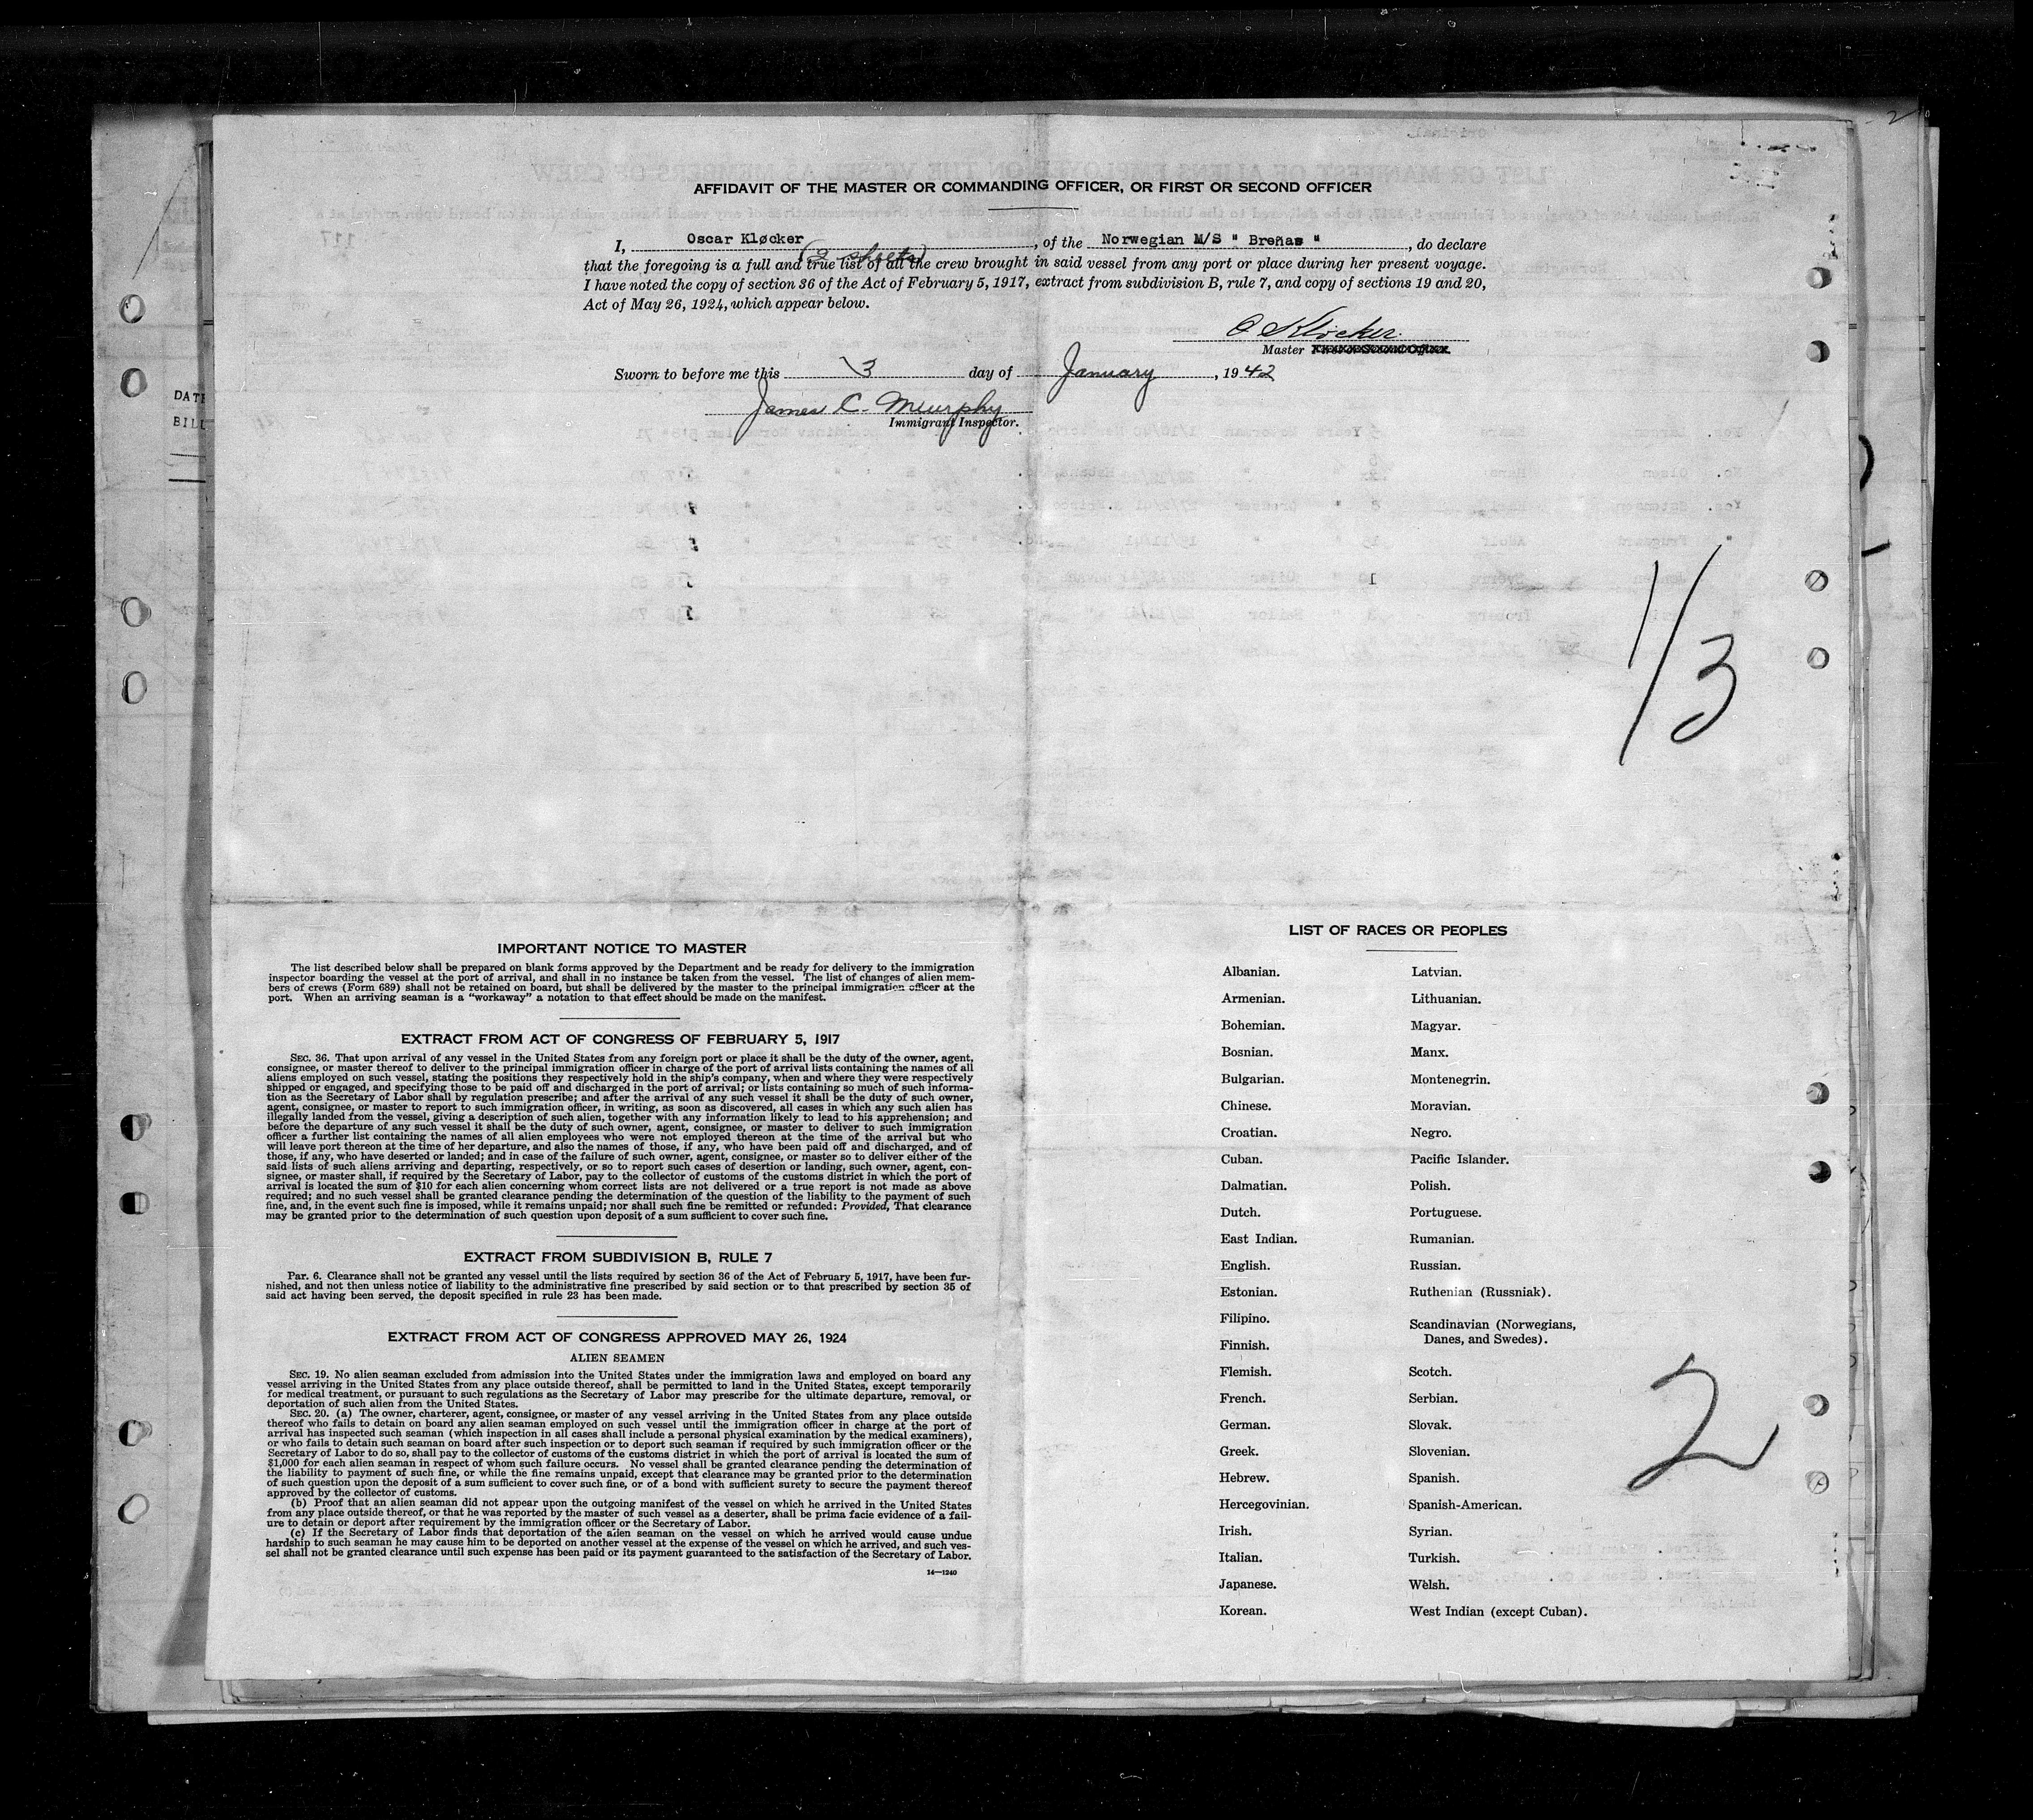 AFFIDAVIT OF THE MASTER OR COMMANDING OFFICER, OR FIRST OR SECOND OFFICER
I, Oscar Kløcker, of the Norwegian M/S " Breñas ", do declare
(2 sheets)
that the foregoing is a full and true list of all the crew brought in said vessel from any port or place during her present voyage.
I have noted the copy of section 36 of the Act of February 5, 1917, extract from subdivision B, rule 7, and copy of sections 19 and 20,
Act of May 26, 1924, which appear below.
O Kløcker
Master
Sworn to before me this 3 day of January, 1942
James C. Murphy
Immigrant Inspector.
1/3
IMPORTANT NOTICE TO MASTER
The list described below shall be prepared on blank forms approved by the Department and be ready for delivery to the immigration
inspector boarding the vessel at the port of arrival, and shall in no instance be taken from the vessel. The list of changes of alien mem-
bers of crews (Form 689) shall not be retained on board, but shall be delivered by the master to the principal immigration officer at the
port. When an arriving seaman is a "workaway" a notation to that effect should be made on the manifest.
EXTRACT FROM ACT OF CONGRESS OF FEBRUARY 5, 1917
SEC. 36. That upon arrival of any vessel in the United States from any foreign port or place it shall be the duty of the owner, agent,
consignee, or master thereof to deliver to the principal immigration officer in charge of the port of arrival lists containing the names of all
aliens employed on such vessel, stating the positions they respectively hold in the ship's company, when and where they were respectively
shipped or engaged, and specifying those to be paid off and discharged in the port of arrival; or lists containing so much of such informa-
tion as the Secretary of Labor shall by regulation prescribe; and after the arrival of any such vessel it shall be the duty of such owner,
agent, consignee, or master to report to such immigration officer, in writing, as soon as discovered, all cases in which any such alien has
illegally landed from the vessel, giving a description of such alien, together with any information likely to lead to his apprehension; and
before the departure of any such vessel it shall be the duty of such owner, agent, consignee, or master to deliver to such immigration
officer a further list containing the names of all alien employees who were not employed thereon at the time of the arrival but who
will leave port thereon at the time of her departure, and also the names of those, if any, who have been paid off and discharged, and of
those, if any, who have deserted or landed; and in case of the failure of such owner, agent, consignee, or master so to deliver either of the
said lists of such aliens arriving and departing, respectively, or so to report such cases of desertion or landing, such owner, agent, con-
signee, or master shall, if required by the Secretary of Labor, pay to the collector of customs of the customs district in which the port of
arrival is located the sum of $10 for each alien concerning whom correct lists are not delivered or a true report is not made as above
required; and no such vessel shall be granted clearance pending the determination of the question of the liability to the payment of such
fine, and, in the event such fine is imposed, while it remains unpaid; nor shall such fine be remitted or refunded: Provided, That clearance
may be granted prior to the determination of such question upon deposit of a sum sufficient to cover such fine.
EXTRACT FROM SUBDIVISION B, RULE 7
Par. 6. Clearance shall not be granted any vessel until the lists required by section 36 of the Act of February 5, 1917, have been fur-
nished, and not then unless notice of liability to the administrative fine prescribed by said section or to that prescribed by section 35 of
said act having been served, the deposit specified in rule 23 has been made.
EXTRACT FROM ACT OF CONGRESS APPROVED MAY 26, 1924
ALIEN SEAMEN
SEC. 19. No alien seaman excluded from admission into the United States under the immigration laws and employed on board any
vessel arriving in the United States from any place outside thereof, shall be permitted to land in the United States, except temporarily
for medical treatment, or pursuant to such regulations as the Secretary of Labor may prescribe for the ultimate departure, removal, or
deportation of such alien from the United States.
SEC. 20. (a) The owner, charterer, agent, consignee, or master of any vessel arriving in the United States from any place outside
thereof who fails to detain on board any alien seaman employed on such vessel until the immigration officer in charge at the port of
arrival has inspected such seaman (which inspection in all cases shall include a personal physical examination by the medical examiners),
or who fails to detain such seaman on board after such inspection or to deport such seaman if required by such immigration officer or the
Secretary of Labor to do so, shall pay to the collector of customs of the customs district in which the port of arrival is located the sum of
$1,000 for each alien seaman in respect of whom such failure occurs. No vessel shall be granted clearance pending the determination of
the liability to payment of such fine, or while the fine remains unpaid, except that clearance may be granted prior to the determination
of such question upon the deposit of a sum sufficient to cover such fine, or of a bond with sufficient surety to secure the payment thereof
approved by the collector of customs.
(b) Proof that an alien seaman did not appear upon the outgoing manifest of the vessel on which he arrived in the United States
from any place outside thereof, or that he was reported by the master of such vessel as a deserter, shall be prima facie evidence of a fail-
ure to detain or deport after requirement by the immigration officer or the Secretary of Labor.
(c) If the Secretary of Labor finds that deportation of the alien seaman on the vessel on which he arrived would cause undue
hardship to such seaman he may cause him to be deported on another vessel at the expense of the vessel on which he arrived, and such ves-
sel shall not be granted clearance until such expense has been paid or its payment guaranteed to the satisfaction of the Secretary of Labor.
14—1240
LIST OF RACES OR PEOPLES
Albanian. Latvian.
Armenian. Lithuanian.
Bohemian. Magyar.
Bosnian. Manx.
Bulgarian. Montenegrin.
Chinese. Moravian.
Croatian. Negro.
Cuban. Pacific Islander.
Dalmatian. Polish.
Dutch. Portuguese.
East Indian. Rumanian.
English. Russian.
Estonian. Ruthenian (Russniak).
Filipino. Scandinavian (Norwegians,
Finnish. Danes, and Swedes).
Flemish. Scotch.
French. Serbian.
German. Slovak.
Greek. Slovenian.
Hebrew. Spanish.
Hercegovinian. Spanish-American.
Irish. Syrian.
Italian. Turkish.
Japanese. Welsh.
Korean. West Indian (except Cuban).
2